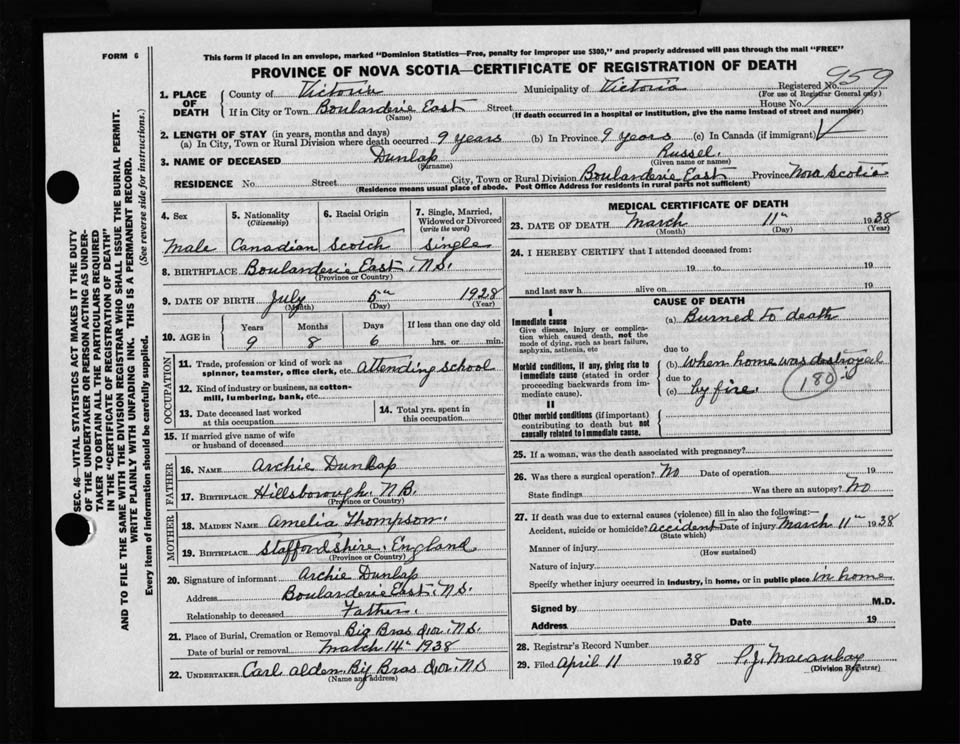 FORM 6
This form if placed in an envelope, marked "Dominion Statistics—Free, penalty for improper use $300," and properly addressed will pass through the mail "FREE"
PROVINCE OF NOVA SCOTIA—CERTIFICATE OF REGISTRATION OF DEATH
SEC. 46—VITAL STATISTICS ACT MAKES IT THE DUTY
OF THE UNDERTAKER OR PERSON ACTING AS UNDER-
TAKER TO OBTAIN ALL THE PARTICULARS REQUIRED
IN THE "CERTIFICATE OF REGISTRATION OF DEATH"
AND TO FILE THE SAME WITH THE DIVISION REGISTRAR WHO SHALL ISSUE THE BURIAL PERMIT.
WRITE PLAINLY WITH UNFADING INK. THIS IS A PERMANENT RECORD.
Every item of information should be carefully supplied. (See reverse side for instructions.)
1. PLACE OF DEATH
County of Victoria Municipality of Victoria Registered No. 959
(For use of Registrar General only)
If in City or Town Boularderie East Street House No.
(Name) (If death occurred in a hospital or institution, give the name instead of street and number)
2. LENGTH OF STAY (in years, months and days)
(a) In City, Town or Rural Division where death occurred 9 years (b) In Province 9 years (c) In Canada (if immigrant)
3. NAME OF DECEASED Dunlap Russel.
(Surname) (Given name or names)
RESIDENCE No. Street City, Town or Rural Division Boularderie East Province Nova Scotia
(Residence means usual place of abode. Post Office Address for residents in rural parts not sufficient)
4. Sex 5. Nationality (Citizenship) 6. Racial Origin 7. Single, Married, Widowed or Divorced (write the word)
Male Canadian Scotch Single
8. BIRTHPLACE Boularderie East, N.S.
(Province or Country)
9. DATE OF BIRTH July 5th 1928
(Month) (Day) (Year)
10. AGE in Years Months Days If less than one day old
9 8 6 hrs. or min.
OCCUPATION
11. Trade, profession or kind of work as spinner, teamster, office clerk, etc. Attending School
12. Kind of industry or business, as cotton-mill, lumbering, bank, etc.
13. Date deceased last worked at this occupation
14. Total yrs. spent in this occupation.
15. If married give name of wife or husband of deceased
FATHER
16. NAME Archie Dunlap
17. BIRTHPLACE Hillsborough, N.B.
(Province or Country)
MOTHER
18. MAIDEN NAME Amelia Thompson.
19. BIRTHPLACE Staffordshire, England
(Province or Country)
20. Signature of informant Archie Dunlap
Address Boularderie East, N.S.
Relationship to deceased Father.
21. Place of Burial, Cremation or Removal Big Bras d'Or, N.S.
Date of burial or removal March 14th 1938
22. UNDERTAKER Carl Alden, Big Bras d'Or, N.S
(Name and address)
MEDICAL CERTIFICATE OF DEATH
23. DATE OF DEATH March 11th 1938
(Month) (Day) (Year)
24. I HEREBY CERTIFY that I attended deceased from:
19 to 19
and last saw h alive on 19
CAUSE OF DEATH
I
Immediate cause
Give disease, injury or complication which caused death, not the mode of dying, such as heart failure, asphyxia, asthenia, etc
(a) Burned to death
due to
Morbid conditions, if any, giving rise to immediate cause (stated in order proceeding backwards from immediate cause).
(b) When home was destroyed
due to
(c) by fire. 180
II
Other morbid conditions (if important) contributing to death but not causally related to immediate cause.
25. If a woman, was the death associated with pregnancy?
26. Was there a surgical operation? No Date of operation 19
State findings Was there an autopsy? No
27. If death was due to external causes (violence) fill in also the following:—
Accident, suicide or homicide? accident Date of injury March 11th 1938
(State which)
Manner of injury
(How sustained)
Nature of injury
Specify whether injury occurred in industry, in home, or in public place in home
Signed by M.D.
Address Date 19
28. Registrar's Record Number
29. Filed April 11 1938 P.J. Macaulay
(Division Registrar)